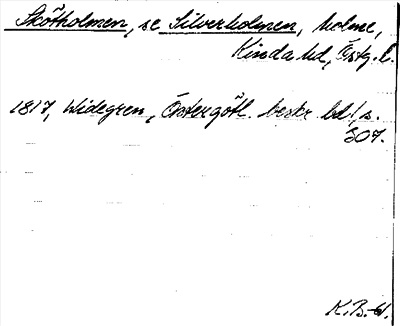 Skötholmen, se Silverholmen, holme,
Kinda hd, Östg. l.
1817, Widegren, Östergötl. beskr. bd 1, s.
307.
K.B.-W.